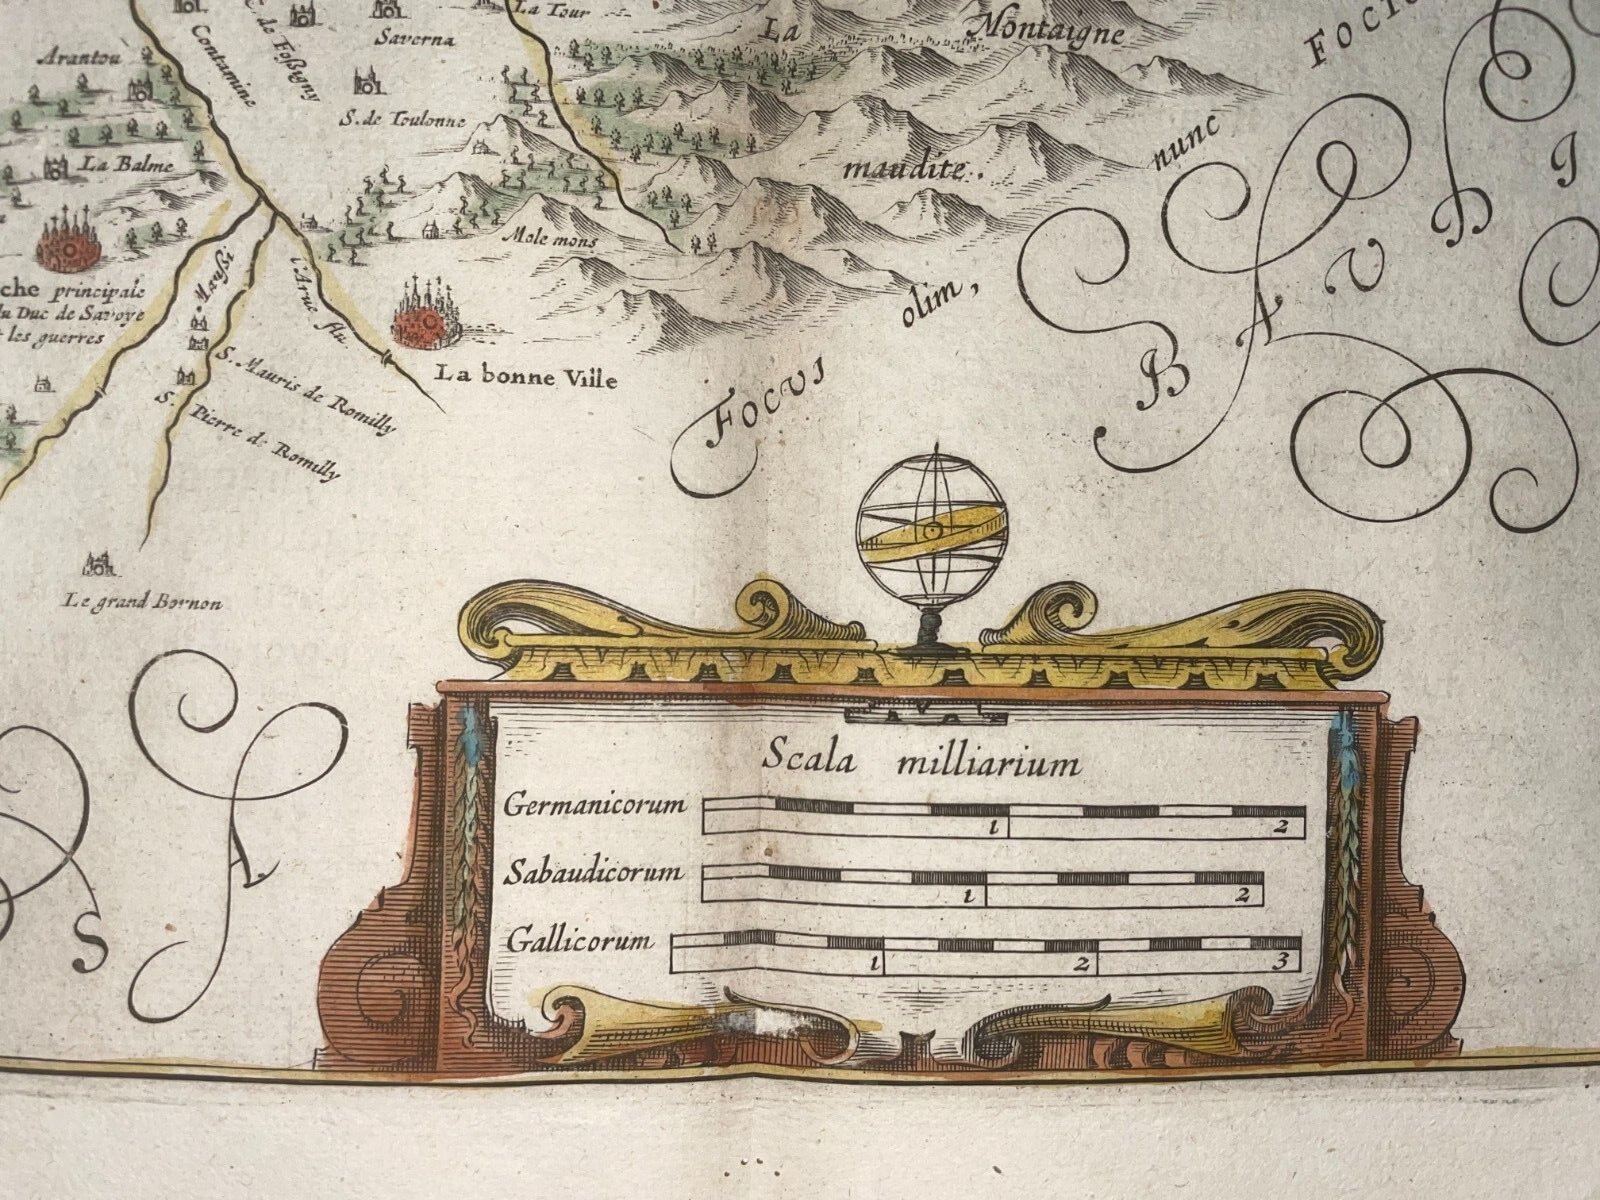 La Tour
La Montaigne
maudite.
Saverna
Arantou
Contamine
C. de Foßigny
S. de Toulonne
La Balme
Mole mons
che principale
du Duc de Savoye
les guerres
l'Arue flu.
La bonne Ville
S. Mauris de Romilly
S. Pierre de Romilly
Le grand Bornon
Focvi
olim,
nunc
BAV
S A
Scala milliarium
Germanicorum
1 2
Sabaudicorum
1 2
Gallicorum
1 2 3